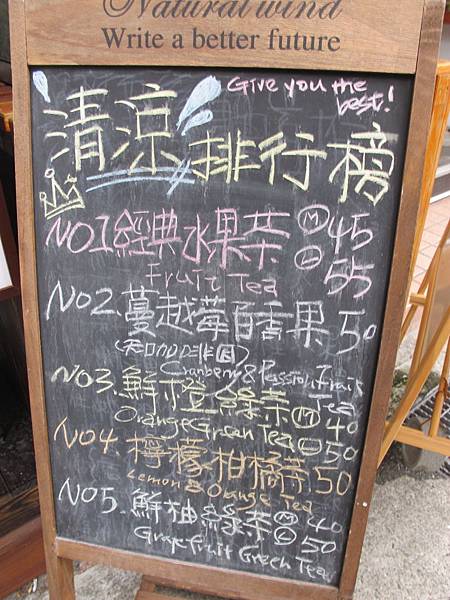 Natural wind
Write a better future
Give you the best!
清涼排行榜
NO1 經典水果茶 Ⓜ 45
Ⓛ 55
Fruit Tea
NO2. 蔓越莓百香果 50
Cranberry & Passion Fruit Tea
NO3. 鮮橙綠茶 Ⓜ 40
Orange Green Tea Ⓛ 50
NO4. 檸檬柑橘茶 50
Lemon & Orange Tea
NO5. 鮮柚綠茶 Ⓜ 40
Ⓛ 50
Grapefruit Green Tea